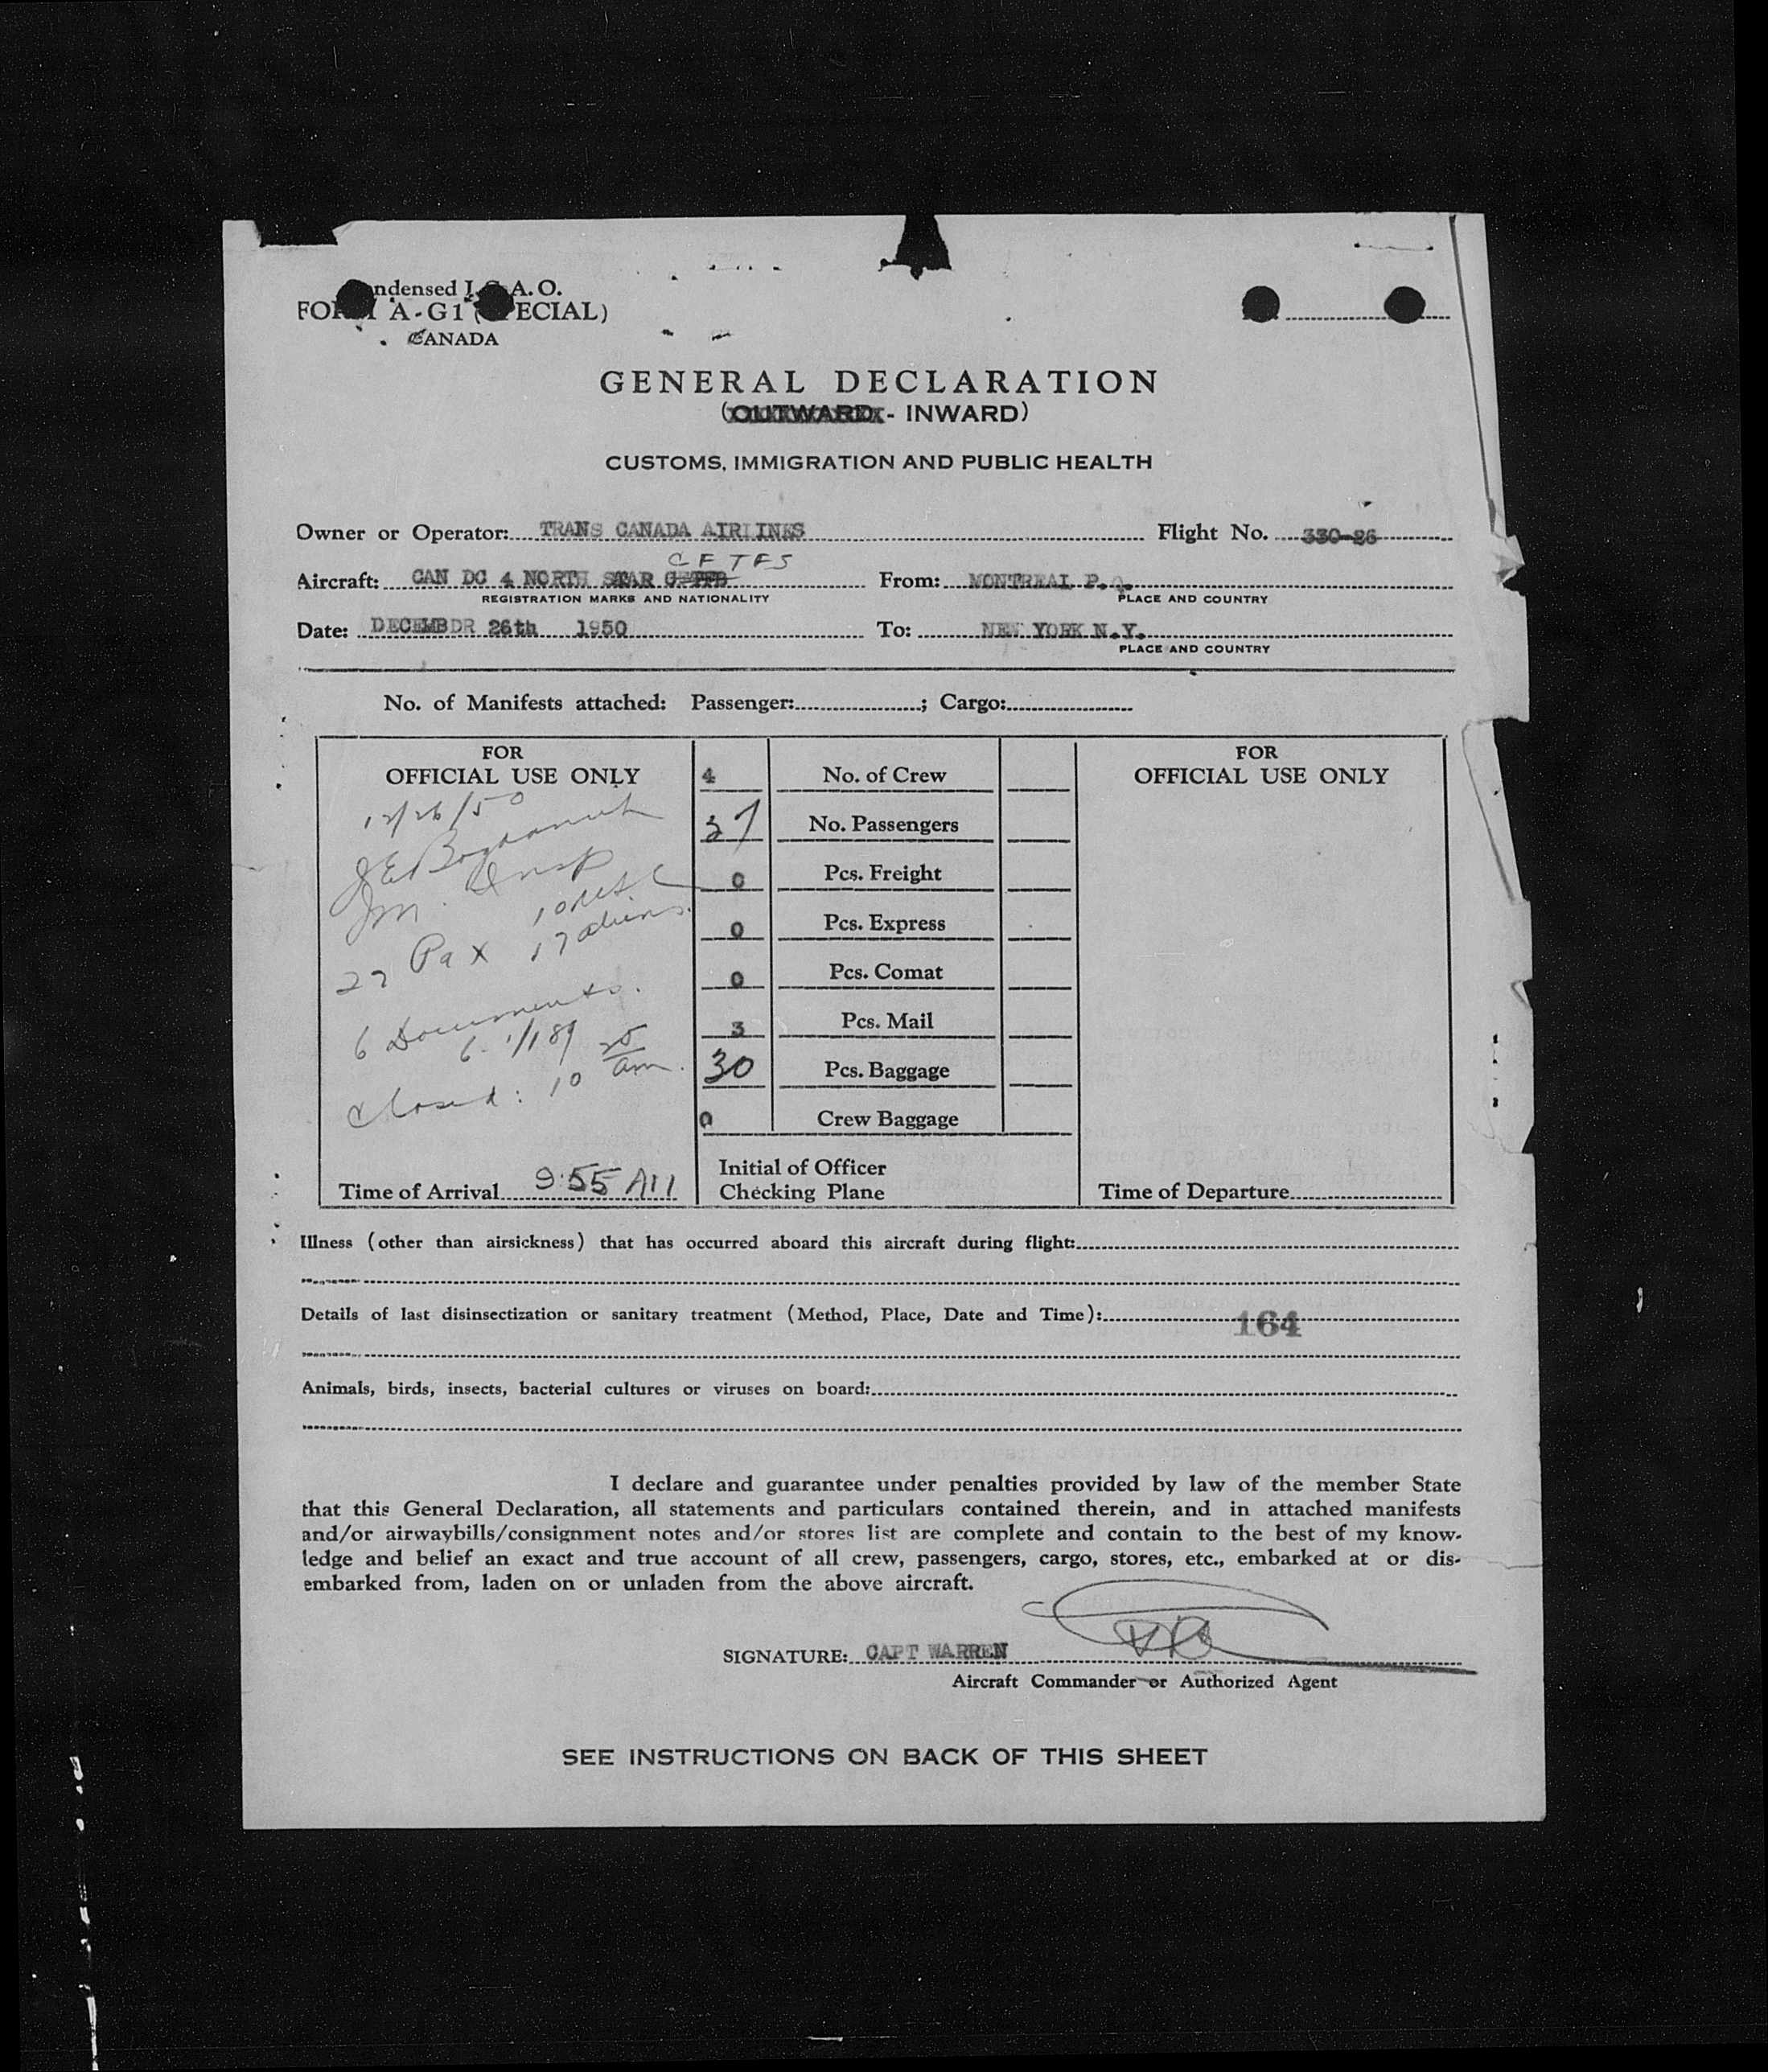 ndensed I. A. O.
FOR A-G1 ( ECIAL)
CANADA
GENERAL DECLARATION
(OUTWARD - INWARD)
CUSTOMS, IMMIGRATION AND PUBLIC HEALTH
Owner or Operator: TRANS CANADA AIRLINES Flight No. 330-26
C F T F S
Aircraft: CAN DC 4 NORTH STAR From: MONTREAL P.Q.
REGISTRATION MARKS AND NATIONALITY PLACE AND COUNTRY
Date: DECEMBDR 26th 1950 To: NEW YORK N.Y.
PLACE AND COUNTRY
No. of Manifests attached: Passenger: ; Cargo:
FOR
OFFICIAL USE ONLY
12/26/50
Im. Insp
27 Pax 17 aliens
6 Documents.
6- 1/189
Closed: 10 25 am.
Time of Arrival 9:55 AM
4 No. of Crew
No. Passengers
0 Pcs. Freight
0 Pcs. Express
0 Pcs. Comat
3 Pcs. Mail
30 Pcs. Baggage
0 Crew Baggage
Initial of Officer
Checking Plane
FOR
OFFICIAL USE ONLY
Time of Departure
Illness (other than airsickness) that has occurred aboard this aircraft during flight:
Details of last disinsectization or sanitary treatment (Method, Place, Date and Time):
164
Animals, birds, insects, bacterial cultures or viruses on board:
I declare and guarantee under penalties provided by law of the member State
that this General Declaration, all statements and particulars contained therein, and in attached manifests
and/or airwaybills/consignment notes and/or stores list are complete and contain to the best of my know-
ledge and belief an exact and true account of all crew, passengers, cargo, stores, etc., embarked at or dis-
embarked from, laden on or unladen from the above aircraft.
SIGNATURE: CAPT WARREN
Aircraft Commander or Authorized Agent
SEE INSTRUCTIONS ON BACK OF THIS SHEET